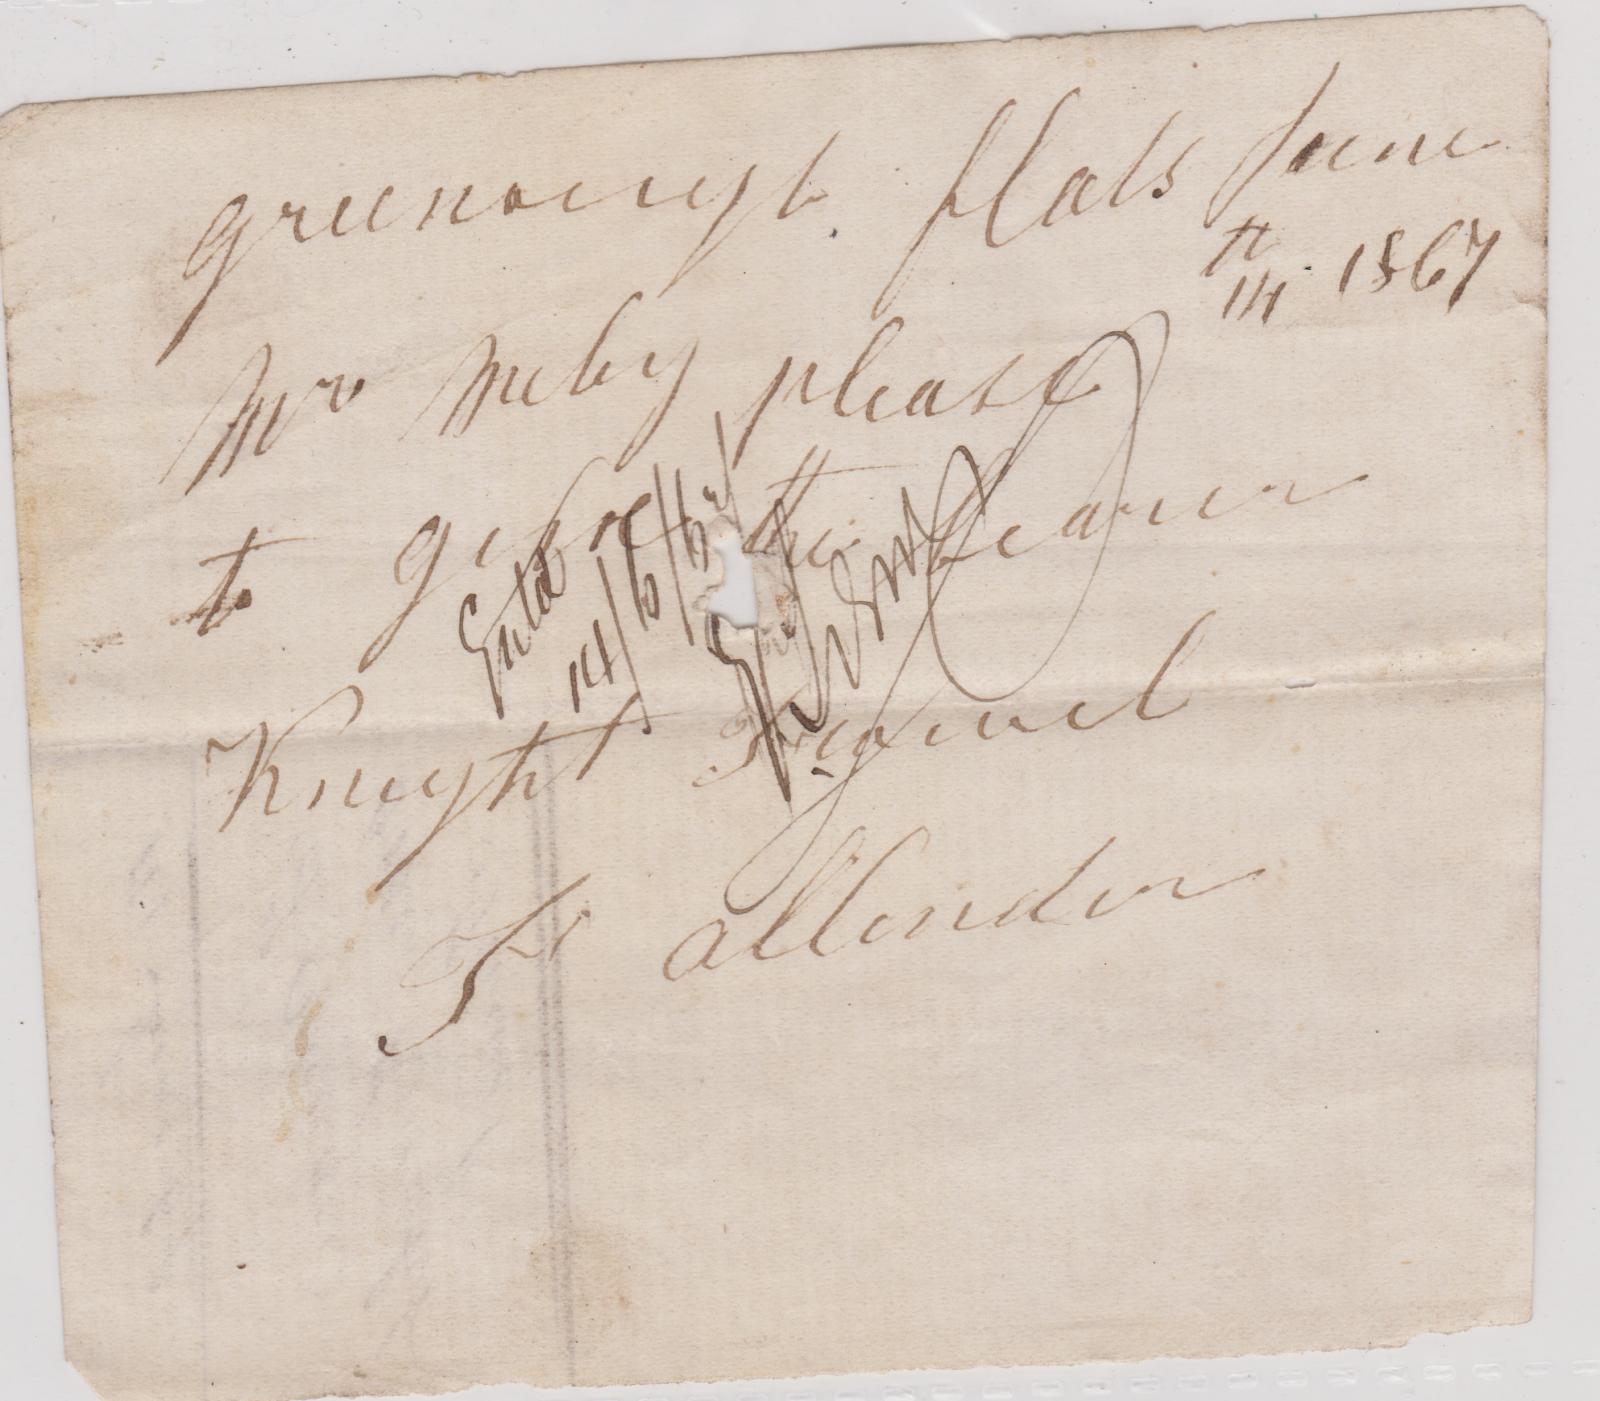 greenough. flats June
14th 1867
Mr Meby please
to give the bearer
Knight
F Allender
Entd
14/6/67